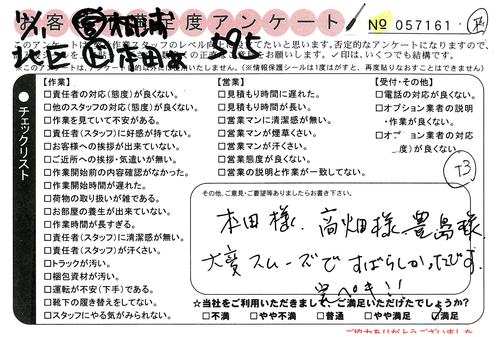 お客様満足度アンケート
№ 057161
このアンケートは、作業スタッフのレベル向上に役立てたいと思います。否定的なアンケートになりますので、
お願いします。✓印は、いくつでも結構です。
(※情報保護シールは1度はがすと、再度貼りなおすことはできません)
チェックリスト
【作業】
□責任者の対応(態度)が良くない。
□他のスタッフの対応(態度)が良くない。
□作業を見ていて不安がある。
□責任者(スタッフ)に好感が持てない。
□お客様への挨拶が出来ていない。
□ご近所への挨拶・気遣いが無い。
□作業開始前の内容確認がなかった。
□作業開始時間が遅れた。
□荷物の取り扱いが雑である。
□お部屋の養生が出来ていない。
□作業時間が長すぎる。
□責任者(スタッフ)に清潔感が無い。
□責任者(スタッフ)が汗くさい。
□トラックが汚い。
□梱包資材が汚い。
□運転が不安(下手)である。
□靴下の履き替えをしてない。
□スタッフにやる気がみられない。
【営業】
□見積もり時間に遅れた。
□見積もり時間が長い。
□営業マンに清潔感が無い。
□営業マンが煙草くさい。
□営業マンが汗くさい。
□営業態度が良くない。
□営業の説明と作業が一致してない。
【受付・その他】
□電話の対応が良くない。
□オプション業者の説明
・作業が良くない。
□オプション業者の対応
(態度)が良くない。
T3
その他、ご意見・ご要望等ありましたらお書き下さい。
本田様、高畑様、豊島様
大変スムーズですばらしかったです。
完ぺき!!
☆当社をご利用いただきまして、ご満足いただけたでしょうか?
□不満 □やや不満 □普通 □やや満足 ☑満足
ご協力ありがとうございました